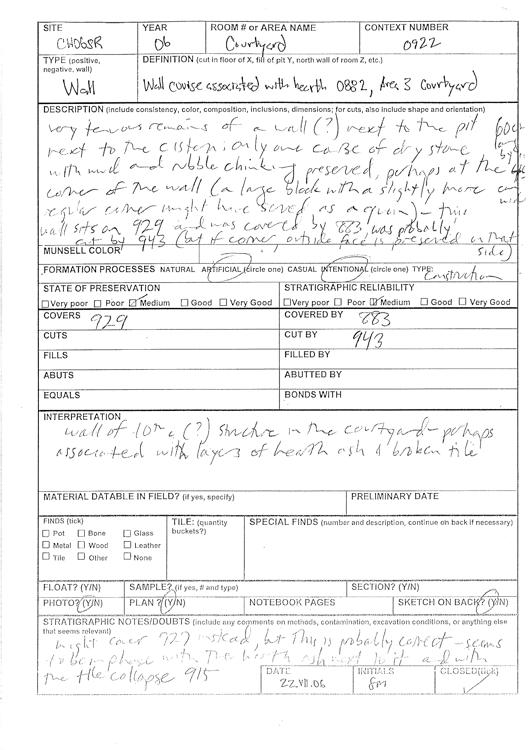 SITE YEAR ROOM # or AREA NAME CONTEXT NUMBER
CH06SR 06 Courtyard 0922
TYPE (positive, negative, wall) DEFINITION (cut in floor of X, fill of pit Y, north wall of room Z, etc.)
Wall Wall course associated with hearth 0882, Area 3 Courtyard
DESCRIPTION (include consistency, color, composition, inclusions, dimensions; for cuts, also include shape and orientation)
very tenuous remains of a wall (?) next to the pit
next to the cistern, only one course of dry stone
with mud and rubble chinking preserved, perhaps at the
corner of the wall (a large block with a slightly more
regular corner might have served as a quoin) - this
wall sits on 929 and was covered by 883, was probably
cut by 943 (but if corner, outside face is preserved on that
side)
60cm
long
by
wide
MUNSELL COLOR
FORMATION PROCESSES NATURAL ARTIFICIAL (circle one) CASUAL INTENTIONAL (circle one) TYPE: Construction
STATE OF PRESERVATION STRATIGRAPHIC RELIABILITY
Very poor Poor Medium Good Very Good Very poor Poor Medium Good Very Good
COVERS 929 COVERED BY 883
CUTS CUT BY 943
FILLS FILLED BY
ABUTS ABUTTED BY
EQUALS BONDS WITH
INTERPRETATION
wall of 10th c (?) structure in the courtyard - perhaps
associated with layers of hearth ash & broken tile
MATERIAL DATABLE IN FIELD? (if yes, specify) PRELIMINARY DATE
FINDS (tick) TILE: (quantity buckets?) SPECIAL FINDS (number and description, continue on back if necessary)
Pot Bone Glass
Metal Wood Leather
Tile Other None
FLOAT? (Y/N) SAMPLE? (if yes, # and type) SECTION? (Y/N)
PHOTO? (Y/N) PLAN? (Y/N) NOTEBOOK PAGES SKETCH ON BACK? (Y/N)
STRATIGRAPHIC NOTES/DOUBTS (include any comments on methods, contamination, excavation conditions, or anything else
that seems relevant)
might cover 927 instead, but this is probably correct - seems
to be in phase with the hearth ash next to it and with
the tile collapse 915
DATE INITIALS CLOSED (tick)
22.VII.06